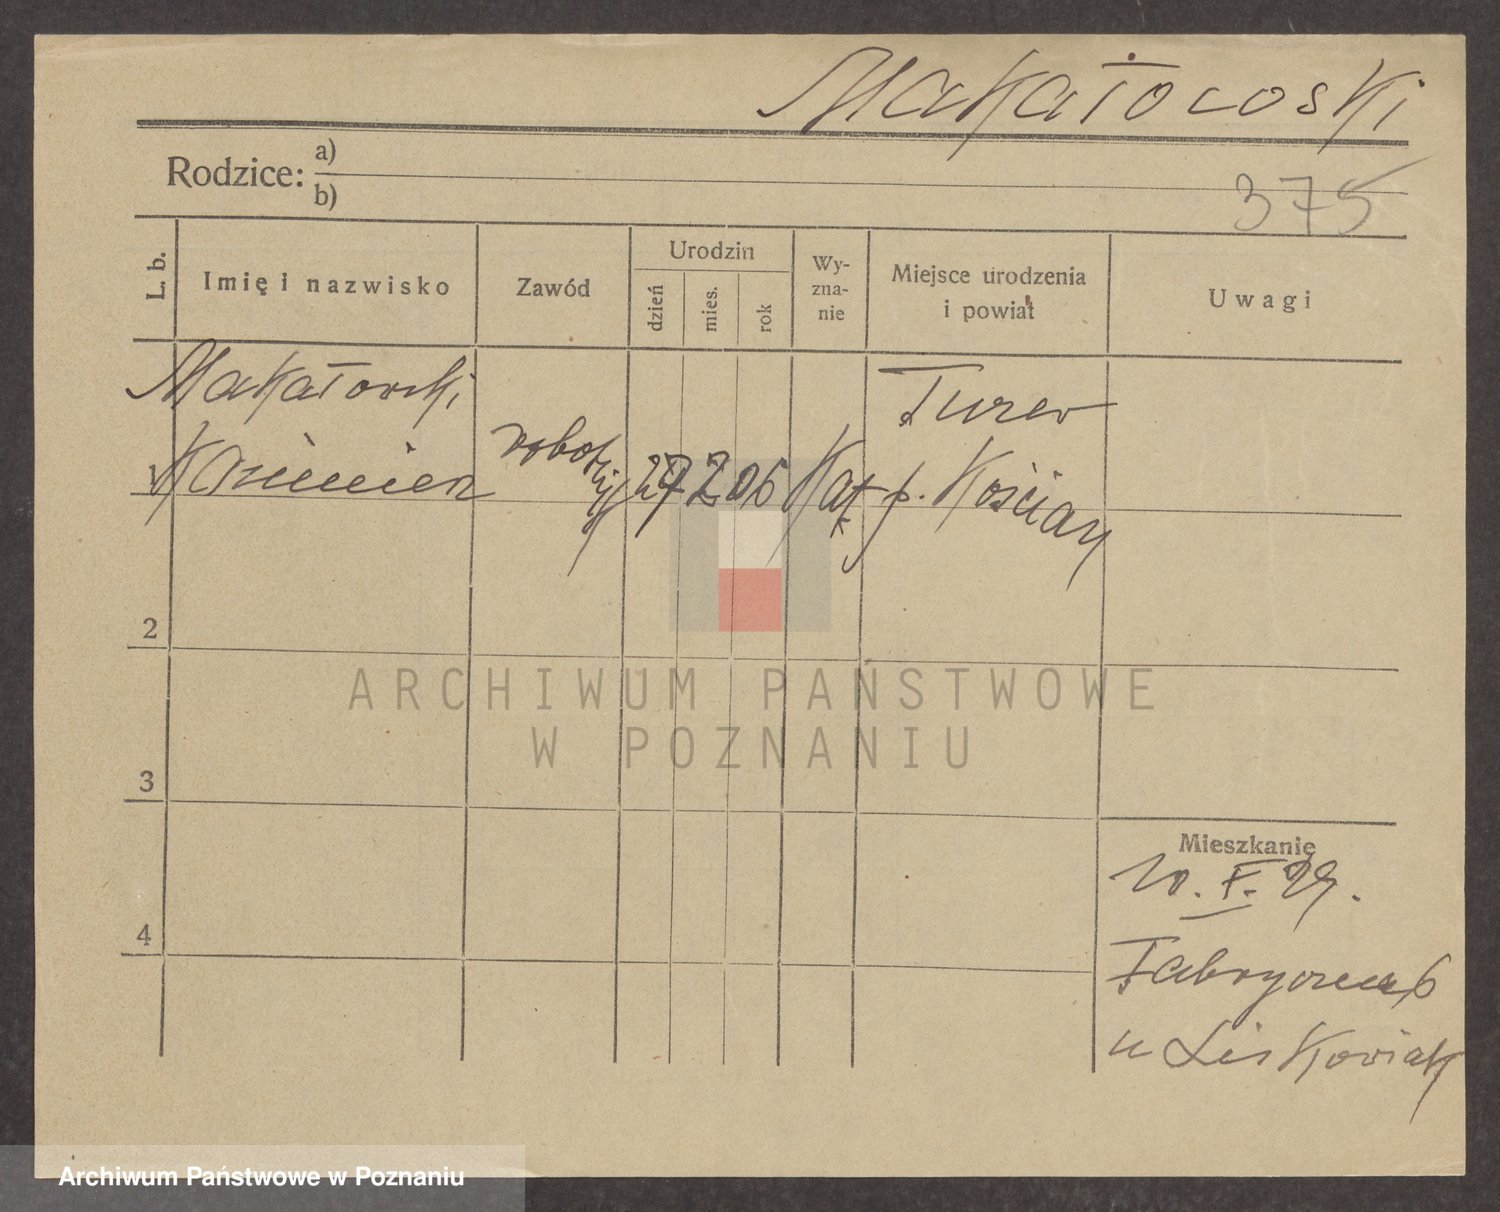 Makałowski
Rodzice: a)
b)
375
L. b.
Imię i nazwisko
Zawód
Urodzin
dzień
mies.
rok
Wy-
zna-
nie
Miejsce urodzenia
i powiat
Uwagi
Makałowski
Kazimierz
robotnik
27 2 06
Kat
Turew
p. Kościan
1
2
3
4
Mieszkanie
10. V. 29.
Fabryczna 6
u Liskowiak
ARCHIWUM PAŃSTWOWE
W POZNANIU
Archiwum Państwowe w Poznaniu